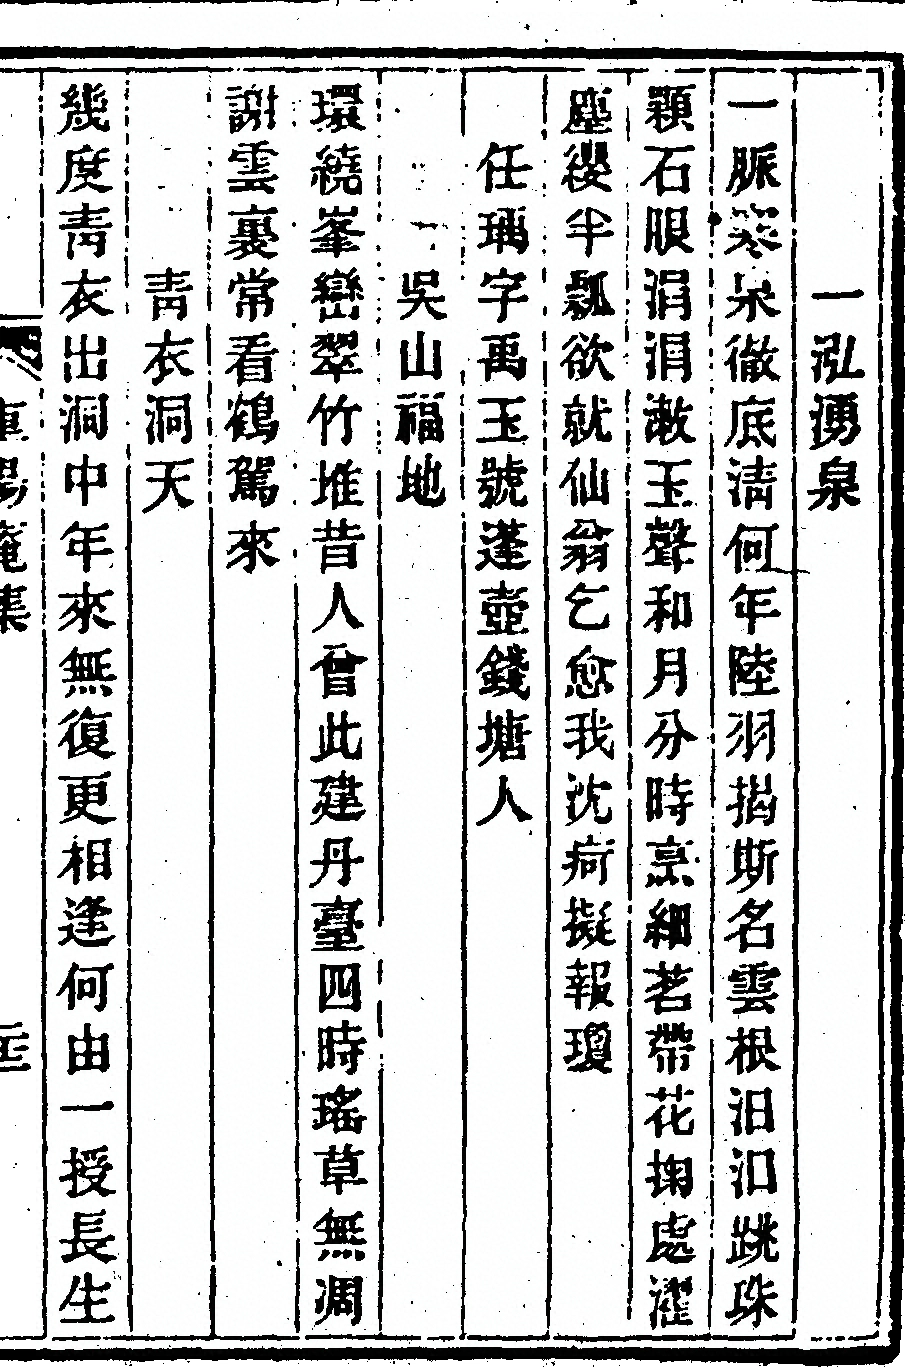 一泓湧泉
一脈寒泉徹底淸何年陸羽揭斯名雲根汨汨跳珠
顆石眼涓涓漱玉聲和月分時烹細茗帶花掬處濯
塵纓半瓢欲就仙翁乞愈我沈疴擬報瓊
任瑀字禹玉號蓬壺錢塘人
吳山福地
環繞峯巒翠竹堆昔人曾此建丹臺四時瑤草無凋
謝雲裏常看鶴駕來
靑衣洞天
幾度靑衣出洞中年來無復更相逢何由一授長生